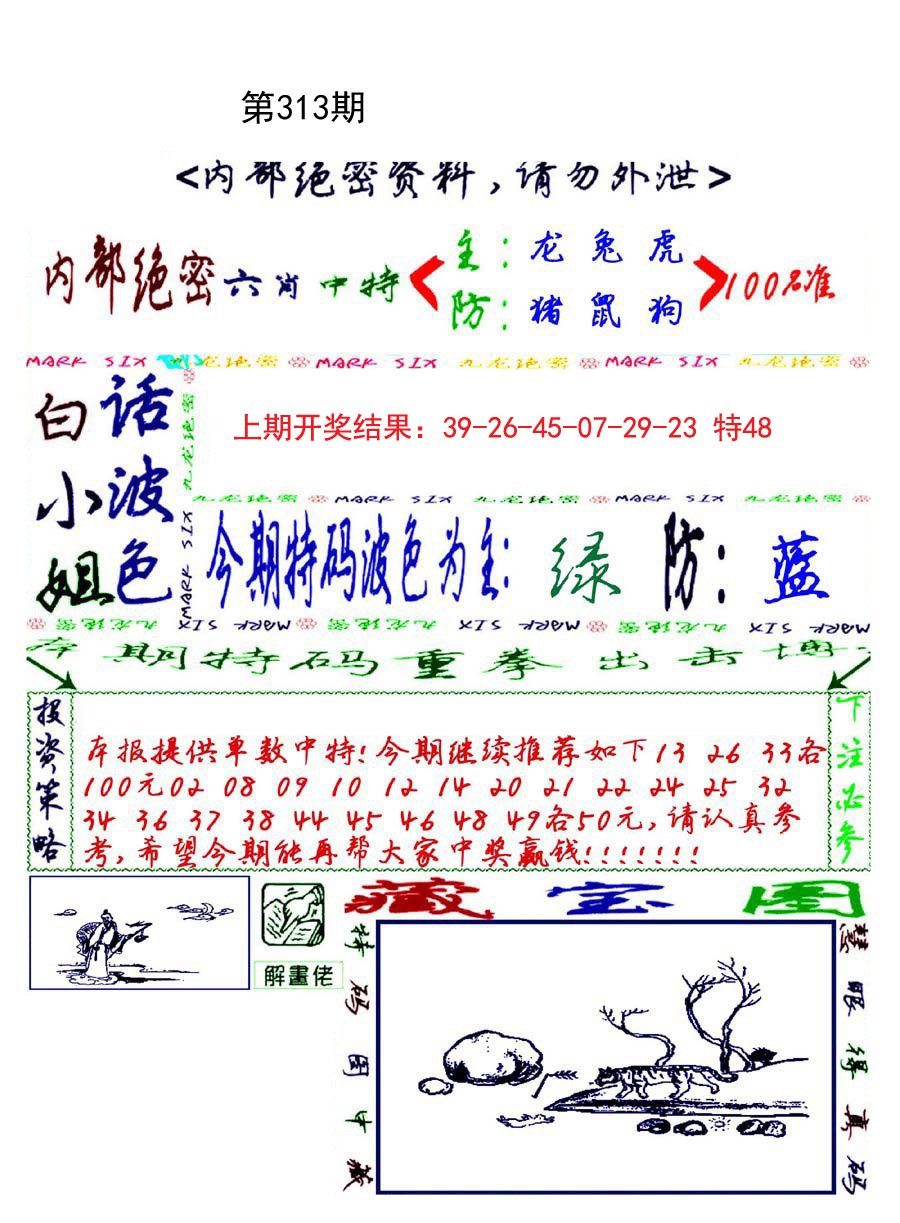 第313期
<内部绝密资料,请勿外泄>
内部绝密六肖中特
主:龙兔虎
防:猪鼠狗
100%准
MARK SIX 九龙绝密 MARK SIX 九龙绝密 MARK SIX 九龙绝密
白话
小波
姐色
九龙绝密
MARK SIX
上期开奖结果：39-26-45-07-29-23 特48
九龙绝密 MARK SIX 九龙绝密 MARK SIX 九龙绝密
今期特码波色为主:绿 防:蓝
九龙绝密 MARK SIX 九龙绝密 MARK SIX 九龙绝密 MARK SIX
本期特码重拳出击博
投资策略
本报提供单数中特!今期继续推荐如下13 26 33各
100元02 08 09 10 12 14 20 21 22 24 25 32
34 36 37 38 44 45 46 48 49各50元,请认真参
考,希望今期能再帮大家中奖赢钱!!!!!!!
下注必参
解畫佬
藏宝图
特码图中藏
慧眼得真码